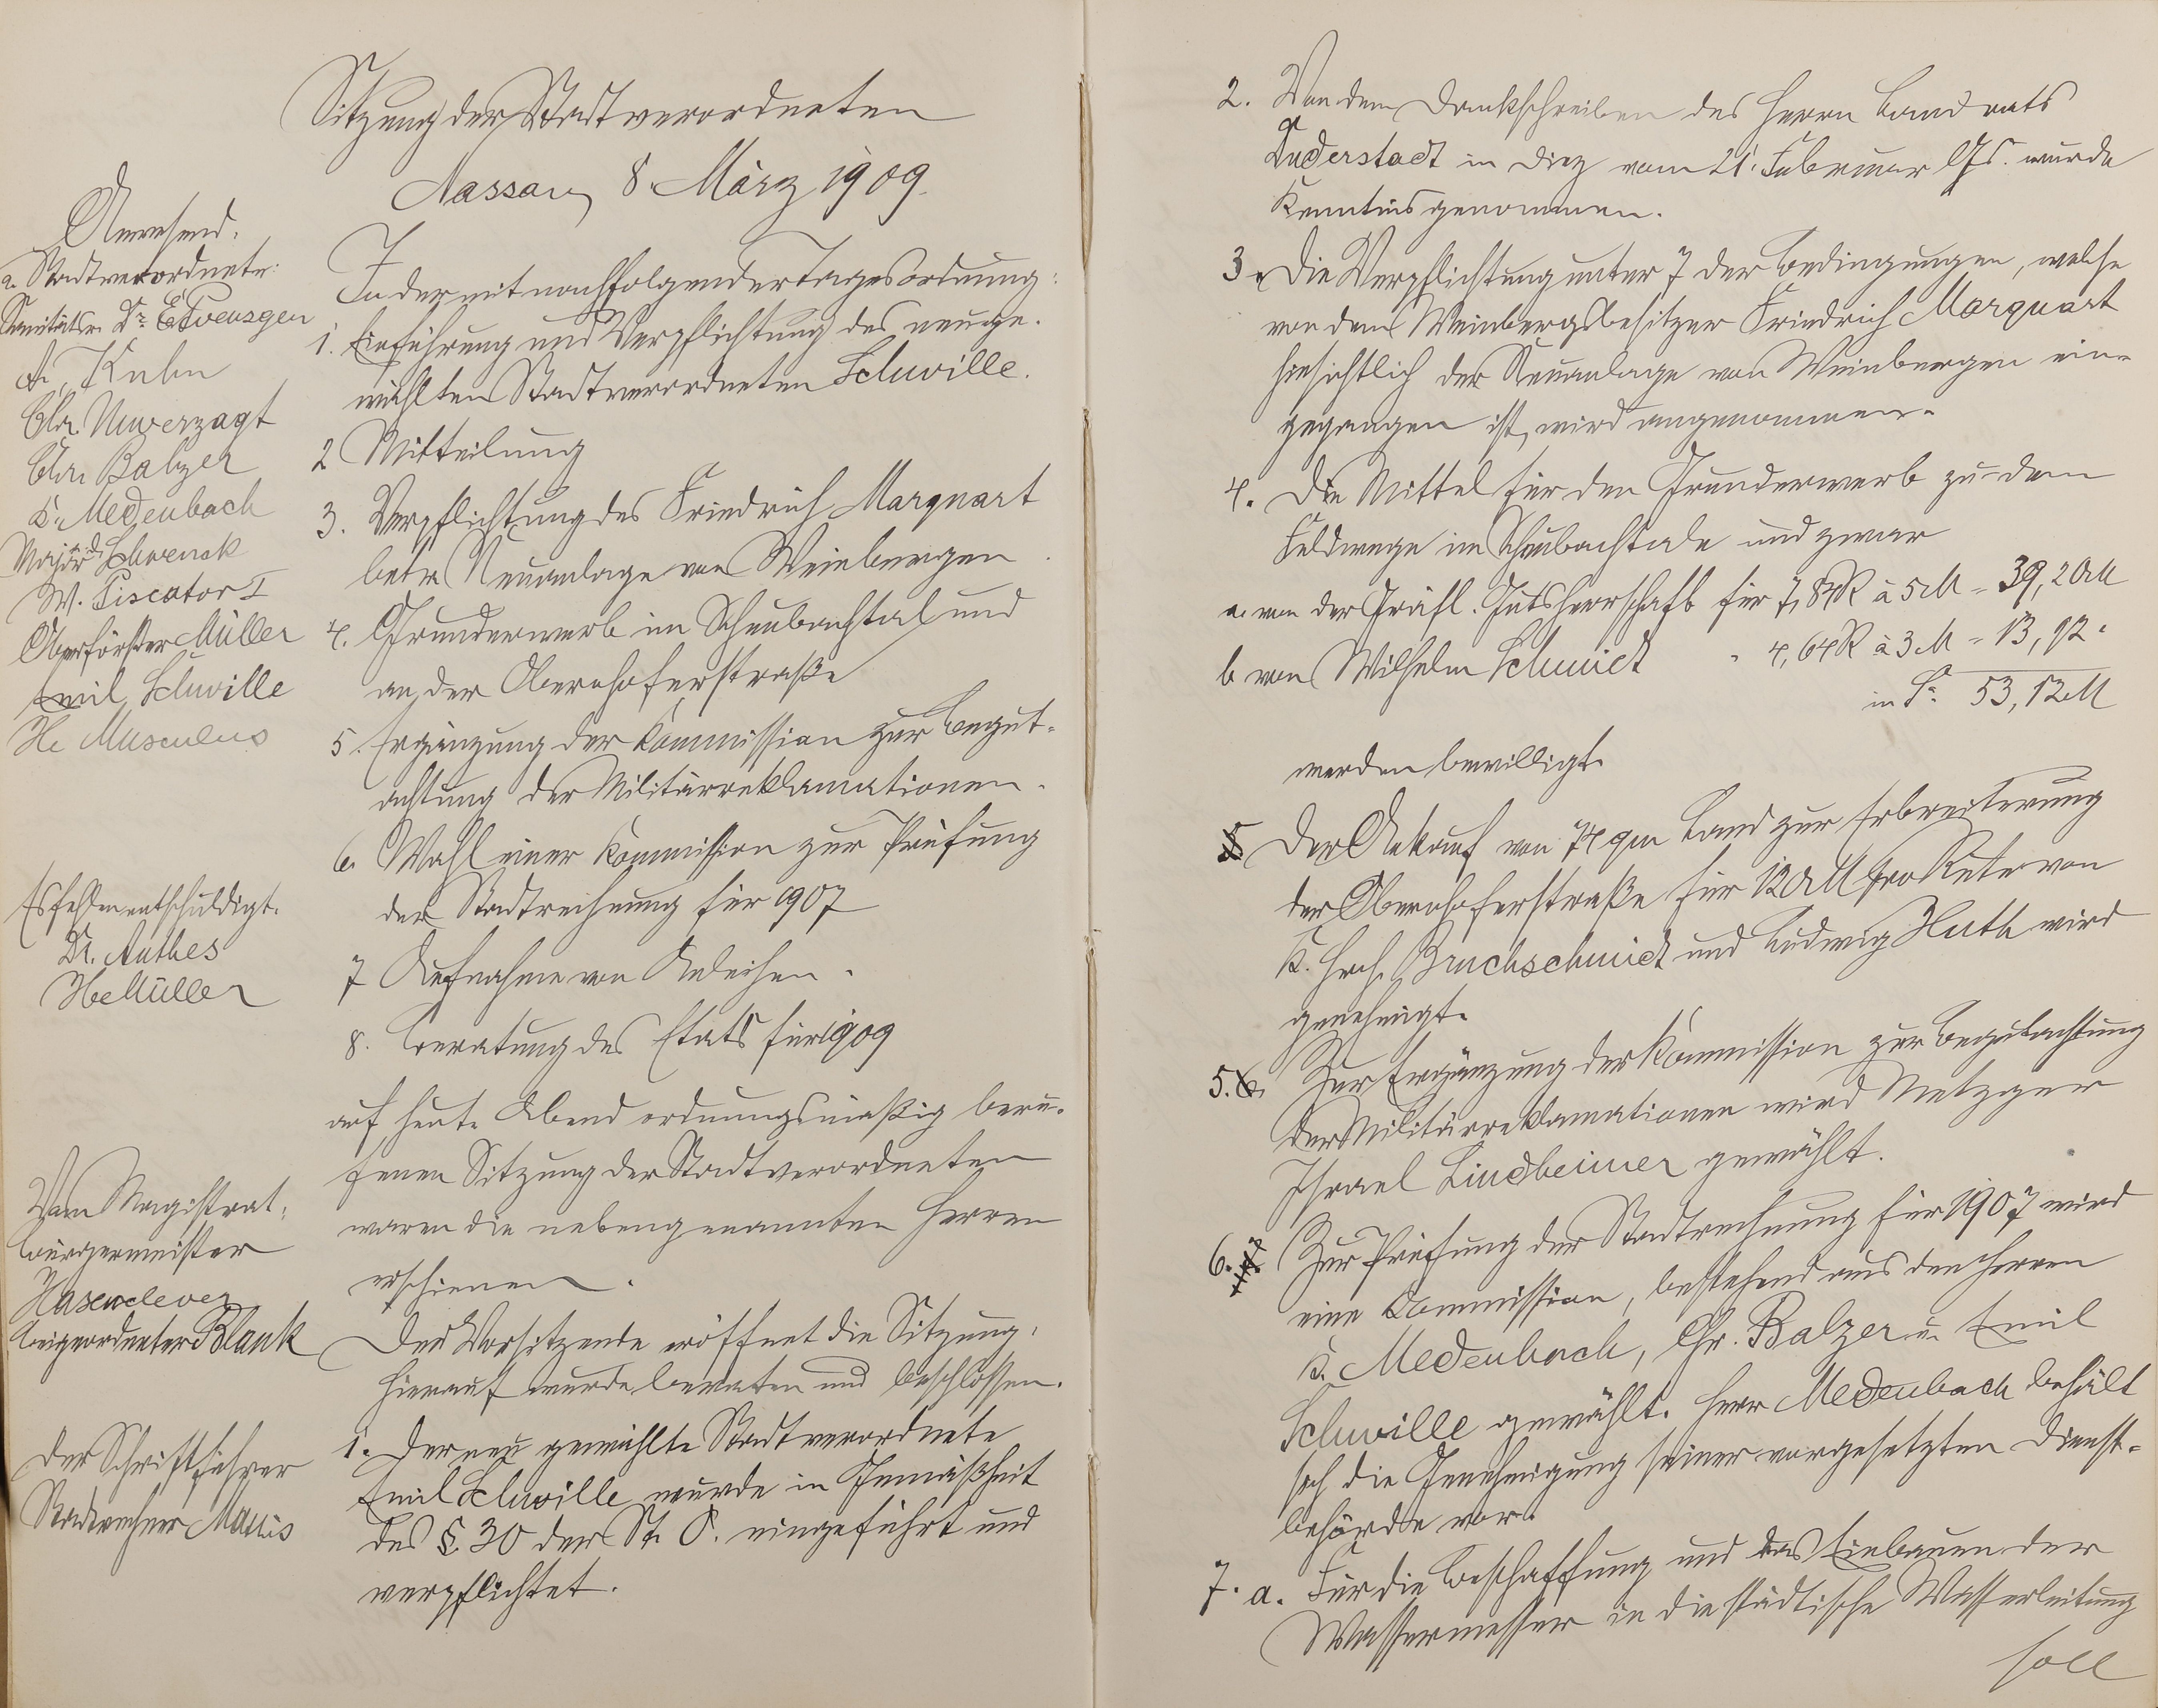 Sitzung der Stadtverordneten
Nassau, 8. März 1909.
Anwesend.
a. Stadtverordnete:
Sanitätsr. Dr.
A. Kuhn
Chr. Unverzagt
Chr. Balzer
K. Medenbach
Major a. D. Schwenck
W. Piscator I
Oberförster Müller
Emil Schwille
He Musculus
Es fehlen entschuldigt.
Dr. Anthes
He Müller
Vom Magistrat:
Bürgermeister
Hasenclever
Beigeordneter Blank
Der Schriftführer
Stadtrechner
In der mit nachfolgender Tagesordnung:
1. Einführung und Verpflichtung des neuge-
wählten Stadtverordneten Schwille.
2 Mitteilung
3. Verpflichtung des Friedrich Marquart
betr. Neuanlage von Weinbergen
4. Grunderwerb im Scheubachtal und
an der Obernhoferstraße
5 Ergänzung der Kommission zur Begut-
achtung der Militärreklamationen.
6. Wahl einer Kommission zur Prüfung
der Stadtrechnung für 1907
7 Aufnahme von Anleihen.
8. Beratung des Etats für 1909
auf heute Abend ordnungsmäßig beru-
fenen Sitzung der Stadtverordneten
waren die nebengenannten Herren
erschienen.
Der Vorsitzende eröffnet die Sitzung,
hierauf wurde beraten und beschlossen.
1. Der neu gewählte Stadtverordnete
Emil Schwille wurde in Gemäßheit
des §. 30 der St. O. eingeführt und
verpflichtet.
2. Von dem Dankschreiben des Herrn Landrats
Duderstadt in Diez vom 21. Februar lfs. wurde
Kenntnis genommen.
3. Die Verpflichtung unter 7 der Bedingungen, welche
von dem Weinbergsbesitzer Friedrich Marquart
hinsichtlich der Neuanlage von Weinbergen ein-
gegangen ist, wird angenommen.
4. Die Mittel für den Grunderwerb zu dem
Feldwege im Scheubachtale und zwar
a. von der Gräfl. Gutsherrschaft für 7,84 R à 5 M = 39,20 M
b von Wilhelm Schmidt " 4,64 R à 3 M = 13,92 "
in Sa. 53,12 M
werden bewilligt.
5 Der Ankauf von 74 qm Land zur Erbreiterung
der Obernhoferstraße für 120 M pro Rute von
K. Hrch. Bruchschmidt und Ludwig Huth wird
genehmigt.
5. 6. Zur Ergänzung der Kommission zur Begutachtung
der Militärreklamationen wird Metzger
Israel Lindheimer gewählt.
6. 7 Zur Prüfung der Stadtrechnung für 1907 wird
eine Kommission, bestehend aus den Herren
K. Medenbach, Chr. Balzer u. Emil
Schwille gewählt. Herr Medenbach behält
sich die Genehmigung seiner vorgesetzten Dienst-
behörde vor.
7. a. Für die Beschaffung und das Einbauen der
Wassermesser in die städtische Wasserleitung
soll